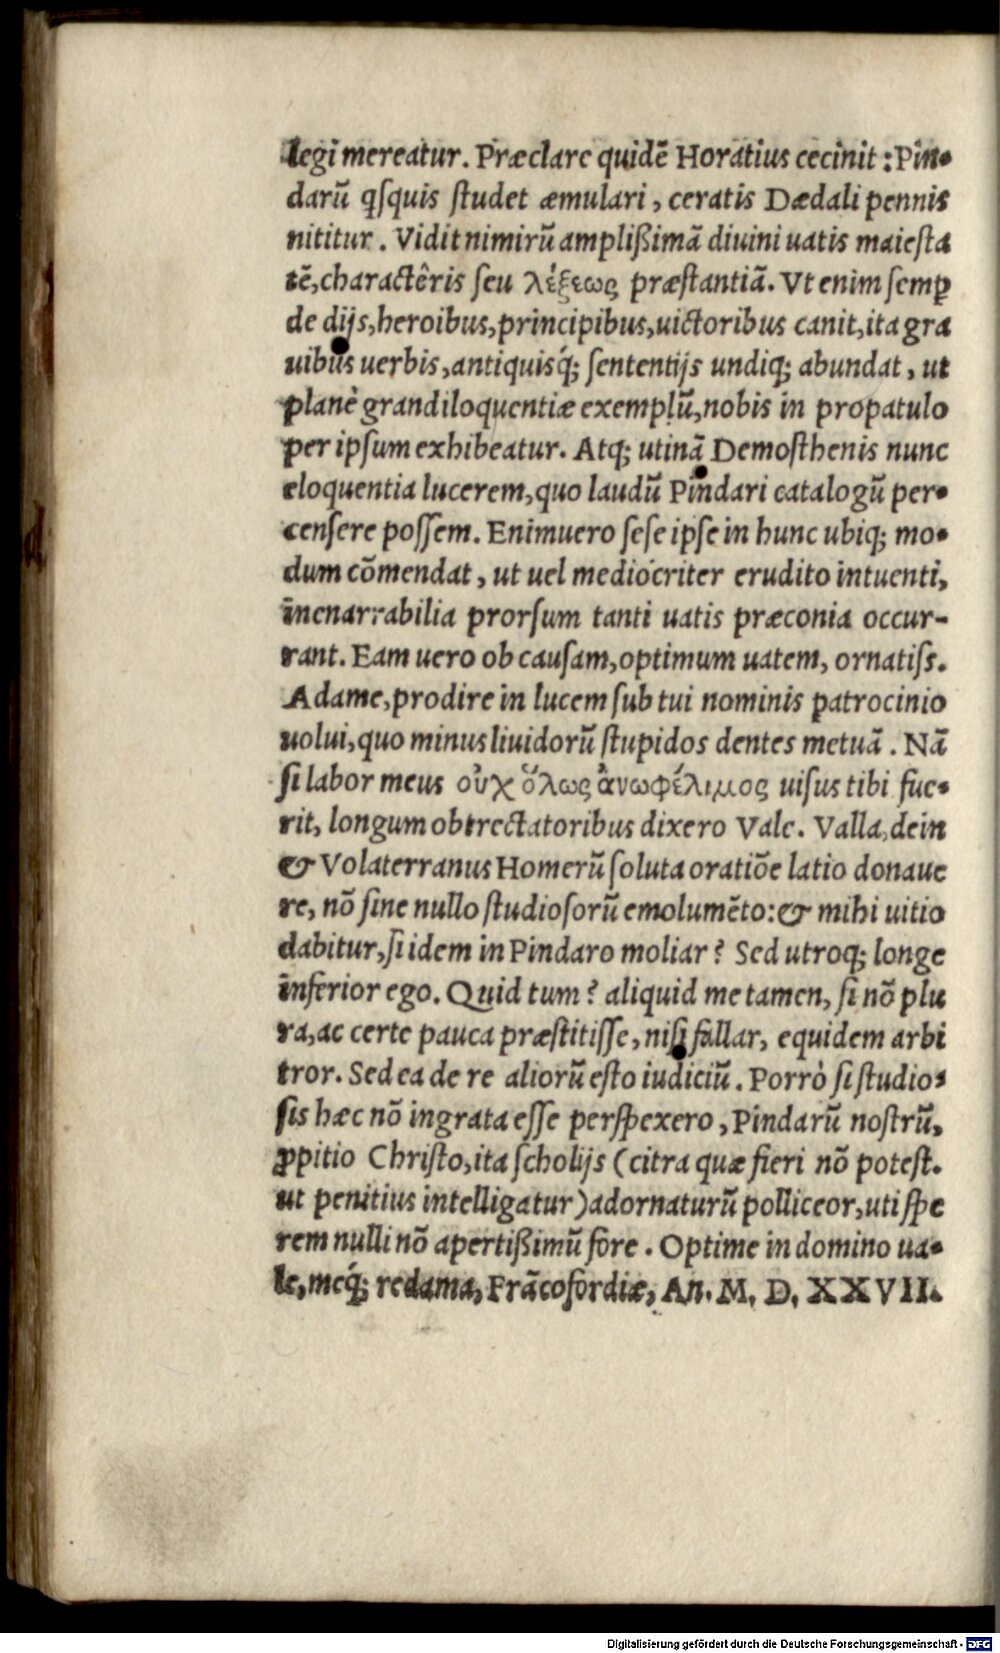 legi mereatur. Præclare quidẽ Horatius cecinit: Pin-
darũ qſquis ſtudet æmulari, ceratis Dædali pennis
nititur. Vidit nimirũ amplißimã diuini uatis maieſta
tẽ, charactêris ſeu λέξεως præſtantiã. Vt enim ſemꝑ
de dijs, heroibus, principibus, uictoribus canit, ita gra
uibus uerbis, antiquisq́; ſententijs undiq; abundat, ut
planè grandiloquentiæ exemplũ, nobis in propatulo
per ipſum exhibeatur. Atq; utinã Demoſthenis nunc
eloquentia lucerem, quo laudũ Pindari catalogũ per-
cenſere poſſem. Enimuero ſeſe ipſe in hunc ubiq; mo-
dum cõmendat, ut uel mediocriter erudito intuenti,
inenarrabilia prorſum tanti uatis præconia occur-
rant. Eam uero ob cauſam, optimum uatem, ornatiſs.
Adame, prodire in lucem ſub tui nominis patrocinio
uolui, quo minus liuidorũ ſtupidos dentes metuã. Nã
ſi labor meus οὐχ ὅλως ἀνωφέλιμος uiſus tibi fue-
rit, longum obtrectatoribus dixero Vale. Valla, dein
& Volaterranus Homerũ ſoluta oratiõe latio donaue
re, nõ ſine nullo ſtudioſorũ emolumẽto: & mihi uitio
dabitur, ſi idem in Pindaro moliar? Sed utroq; longe
inferior ego. Quid tum? aliquid me tamen, ſi nõ plu
ra, ac certe pauca præſtitiſſe, niſi fallar, equidem arbi
tror. Sed ea de re aliorũ eſto iudiciũ. Porrò ſi ſtudio-
ſis hæc nõ ingrata eſſe perſpexero, Pindarũ noſtrũ,
ꝓpitio Chriſto, ita ſcholijs (citra quæ fieri nõ poteſt.
ut penitius intelligatur) adornaturũ polliceor, uti ſpe
rem nulli nõ apertißimũ fore. Optime in domino ua-
le, meq́; redama, Frãcofordiæ, An. M. D. XXVII.
Digitalisierung gefördert durch die Deutsche Forschungsgemeinschaft - DFG